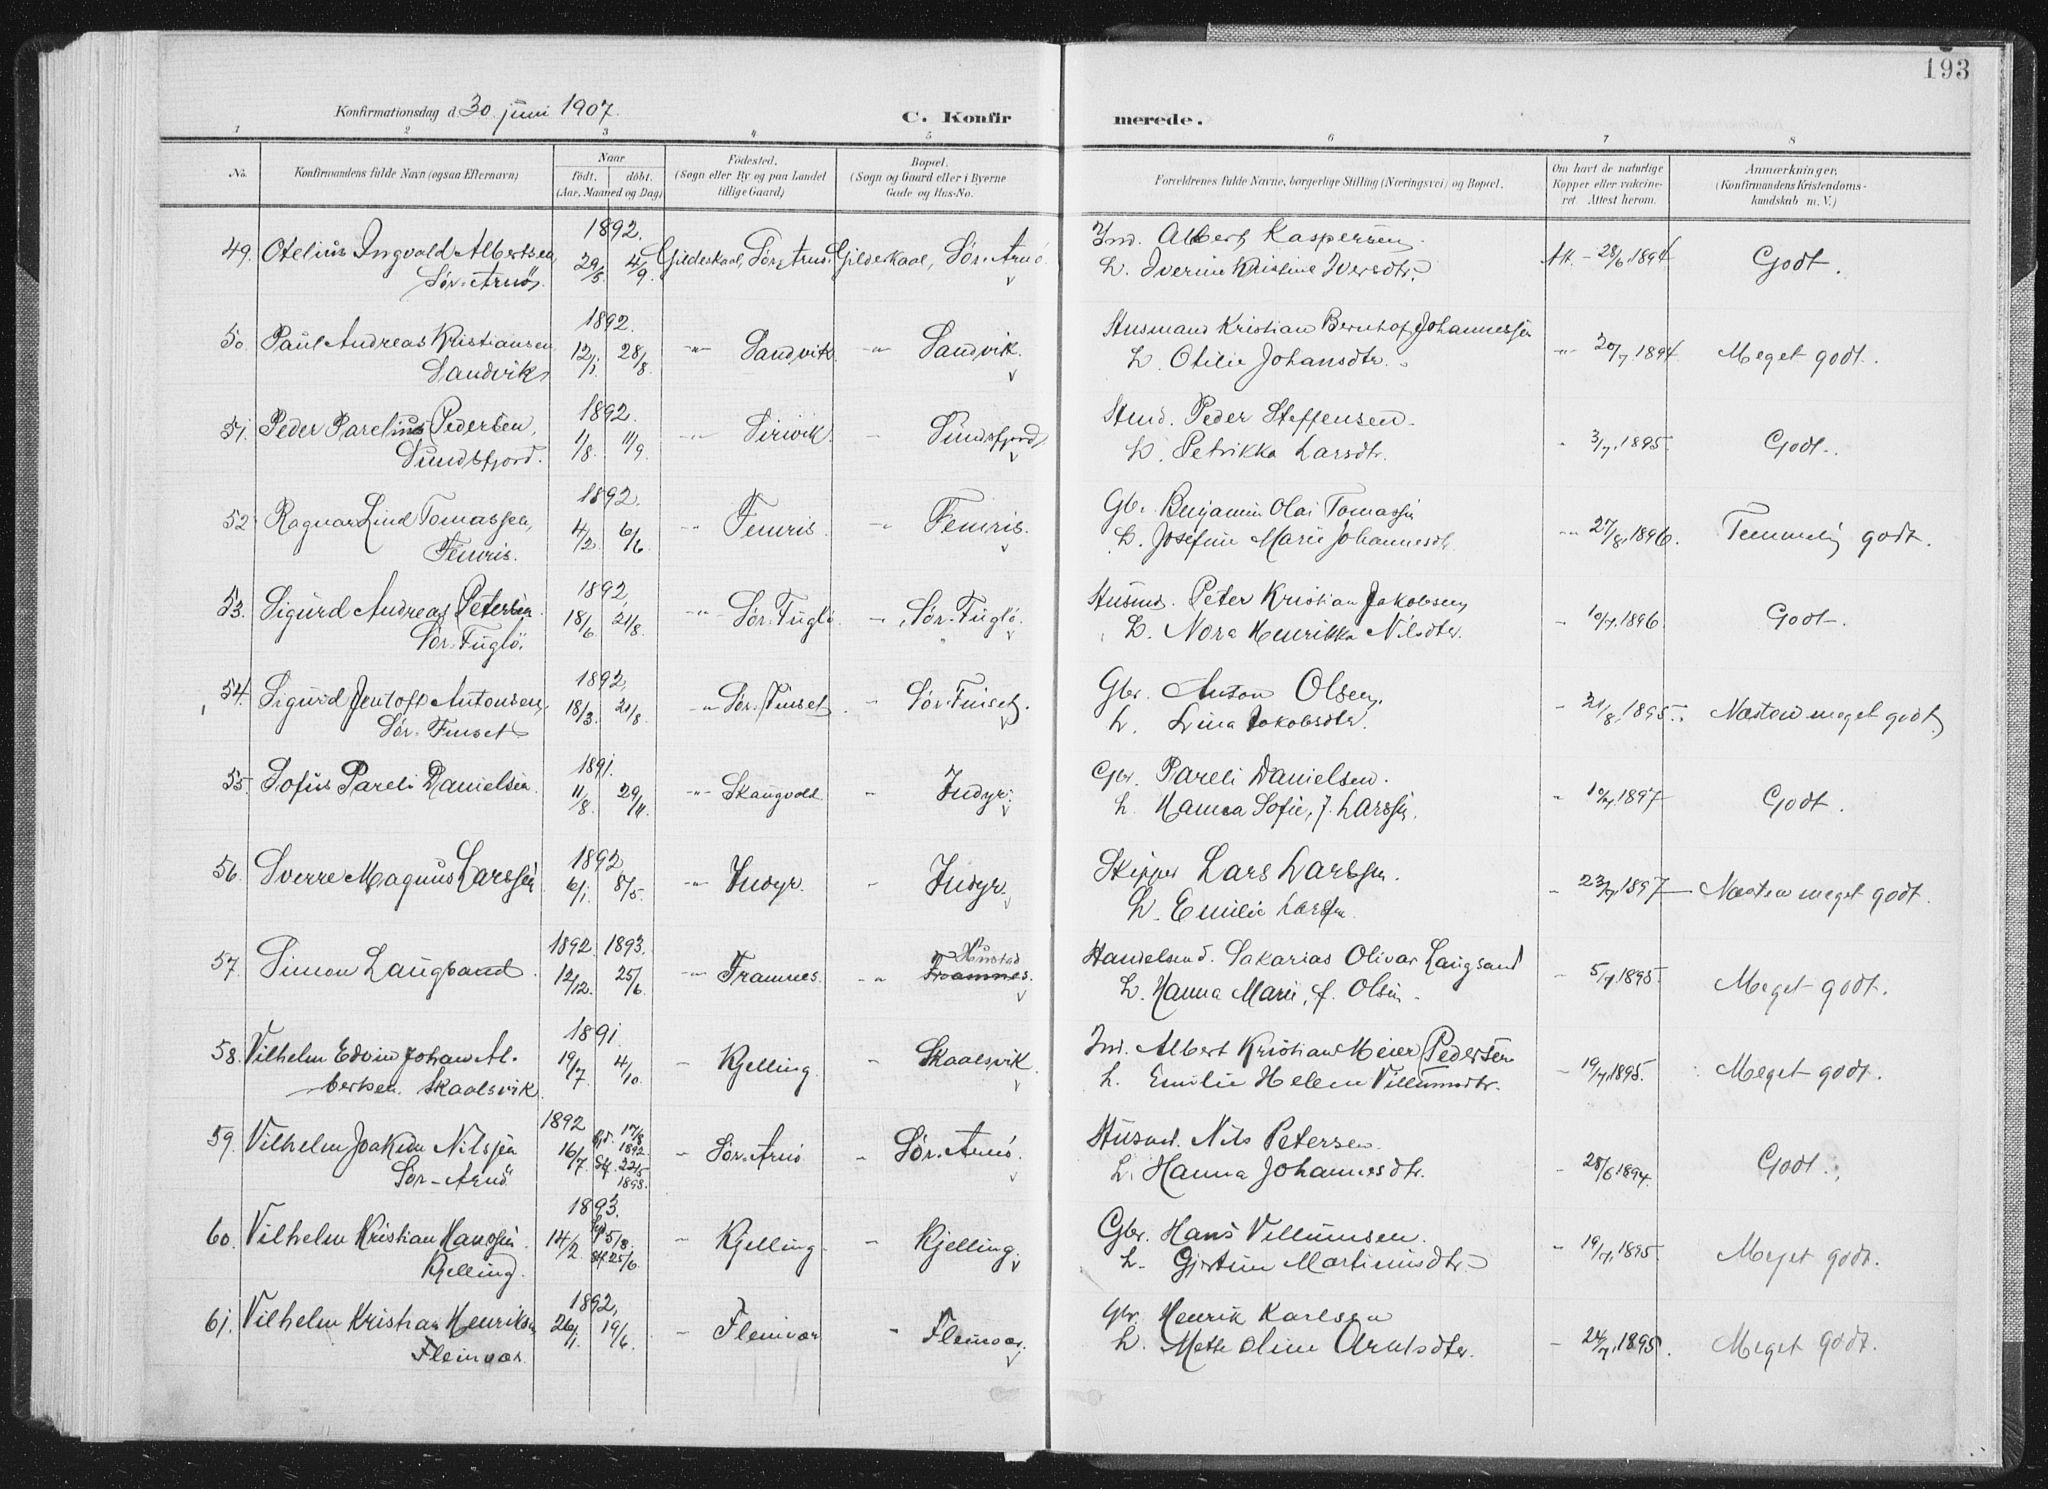 193
Konfirmationsdag d. 30 juni 1907.
C. Konfirmerede.
1 2 3 4 5 6 7 8
No. Konfirmandens fulde Navn (ogsaa Efternavn) Naar født. døbt. (Aar, Maaned og Dag) Fødested. (Sogn eller By og paa Landet tillige Gaard) Bopæl. (Sogn og Gaard eller i Byerne Gade og Hus-No. Forældrenes fulde Navne, borgerlige Stilling (Næringsvei) og Bopæl. Om havt de naturlige Kopper eller vaccineret. Attest herom. Anmærkninger. (Konfirmandens Kristendomskundskab m. V.)
1892.
49. Otelius Ingvald Albertsen, 29/5 4/9. Gildeskaal, Sør-Arnö. Gildeskaal, Sør-Arnö. Ind. Albert Kaspersen, Att. - 28/6 1894 Godt.
Sør-Arnö. v h. Iverine Kristine Iversdtr.
1892.
50. Paul Andreas Kristiansen 12/1. 28/8. -"- Sandvik. -"- Sandvik. Husmand Kristian Bernhof Johannessen -"- 20/7 1894. Meget godt.
Sandvik v h. Otilie Johansdtr.
1892.
51. Peder Parelius Pedersen, 1/8. 11/9. -"- Sirivik. - Sundsfjord Husmd. Peder Steffensen. - 3/7 1895. Godt.
Sundsfjord. v h. Petrikka Larsdtr.
1892.
52. Ragnar Lind Tomassen, 4/2. 6/6. -"- Fenris. -"- Fenris. Gbr. Benjamin Olai Tomassen -"- 27/8 1896. Temmelig godt.
Fenris. v h. Josefine Marie Johannesdtr
1892
53. Sigurd Andreas Petersen 18/6 21/8. -"- Sør-Fuglö. - Sør-Fuglö. Husmd. Peter Kristian Jakobsen, - 10/7 1896. Godt.
Sør-Fuglö. v h. Nora Henrikka Nilsdtr.
1892,
54. Sigurd Jentoft Antonsen, 18/3. 21/8. -"- Sør-Finset. - Sør-Finset. Gbr. Anton Olsen, - 21/8 1895. Næsten meget godt
Sør-Finset v h. Lina Jakobsdtr.
1891.
55. Sofus Pareli Danielsen. 11/8. 29/11. -"- Skaugvold. - Indyr. Gbr. Pareli Danielsen. - 10/7 1897 Godt.
v h. Hanna Sofie, f. Larssen.
1892,
56. Sverre Magnus Larssen. 6/1. 8/5. -"- Indyr. - Indyr. Skipper Lars Larssen. - 23/7 1897 Næsten meget godt.
v h. Emilie Larssen.
1892 1893. Hustad
57. Simon Langsand. 12/12. 25/6. -"- Framnes. -"- Framnes. Handelsmd. Sakarias Olivar Langsand - 5/7 1895. Meget godt.
v h. Hanna Marie, f. Olsen.
1891.
58. Vilhelm Edvin Johan Al- 19/7. 4/10. - Kjelling. - Skaalsvik. Ind. Albert Kristian Meier Pedersen - 19/7 1895. Meget godt.
bertsen. Skaalsvik. v h. Emilie Helene Villumsdtr.
1892
59. Vilhelm Joakim Nilssen 16/7 17/8 1892. 22/5 1893. - Sør-Arnö - Sør-Arnö. Husmd. Nils Petersen - 28/6 1894. Godt.
Sør-Arnö. v h. Hanna Johannesdtr.
1893.
60. Vilhelm Kristian Hanssen. 14/2. 5/3. 25/6. - Kjelling. - Kjelling. Gbr. Hans Villumsen. - 19/7 1895. Meget godt.
Kjelling. v h. Gjertine Martinusdtr.
1892,
61. Vilhelm Kristian Henriksen 26/1. 19/6. - Fleinvær - Fleinvær. Gbr. Henrik Karlsen - 24/7 1895. Meget godt.
Fleinvær. v h. Mette Oline Arntsdtr.